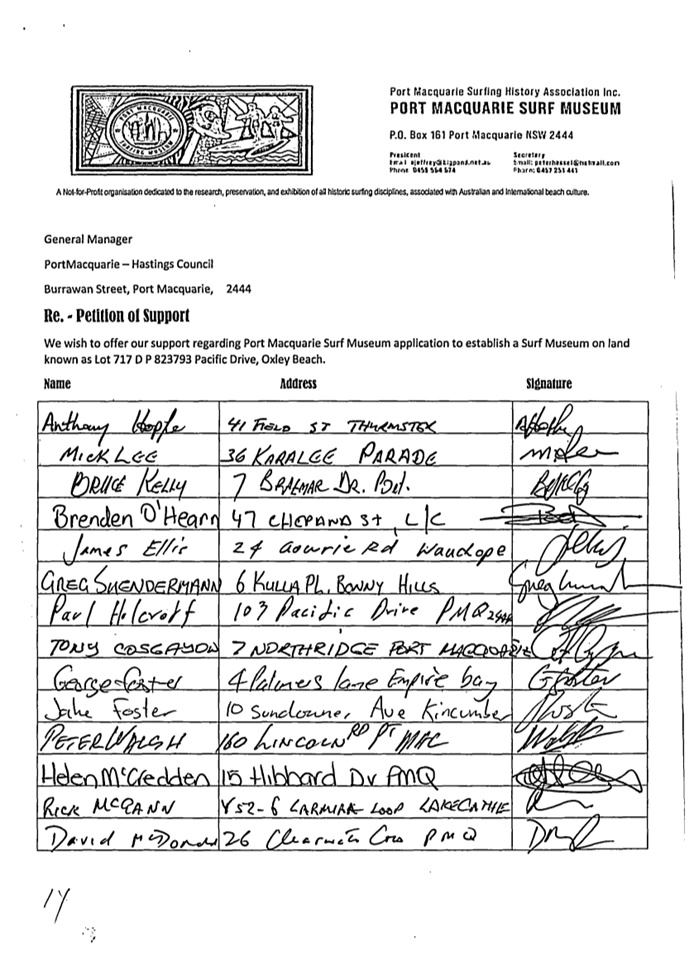 PORT MACQUARIE
SURFING MUSEUM
Port Macquarie Surfing History Association Inc.
PORT MACQUARIE SURF MUSEUM
P.O. Box 161 Port Macquarie NSW 2444
President Secretary
Email ejeffrey@bigpond.net.au Email: peterhessel@hotmail.com
Phone 0458 564 574 Phone: 0457 251 441
A Not-for-Profit organisation dedicated to the research, preservation, and exhibition of all historic surfing disciplines, associated with Australian and International beach culture.
General Manager
PortMacquarie – Hastings Council
Burrawan Street, Port Macquarie, 2444
Re. - Petition of Support
We wish to offer our support regarding Port Macquarie Surf Museum application to establish a Surf Museum on land
known as Lot 717 D P 823793 Pacific Drive, Oxley Beach.
Name Address Signature
Anthony 41 FIELD ST
MICK LEE 36 KARALEE PARADE
BRUCE KELLY 7 BRAEMAR DR.
Brenden O'Hearn 47 ST, L/C
James Ellis 24 Gowrie Rd Wauchope
GREG SUENDERMANN 6 KULLA PL. BONNY HILLS
Paul Holcroft 103 Pacific Drive PMQ 2444
TONY COSGAYON 7 NORTHRIDGE PORT MACQUARIE
George Foster 4 Palmers lane Empire bay
Jake Foster 10 Sundowner Ave Kincumber
PETER WALSH 160 LINCOLN RD PT MAC
Helen McCredden 15 Hibbard Dv PMQ
RICK MCGANN V52-6 LOOP LAKECATHIE
David McDonald 26 Cres PMQ
14